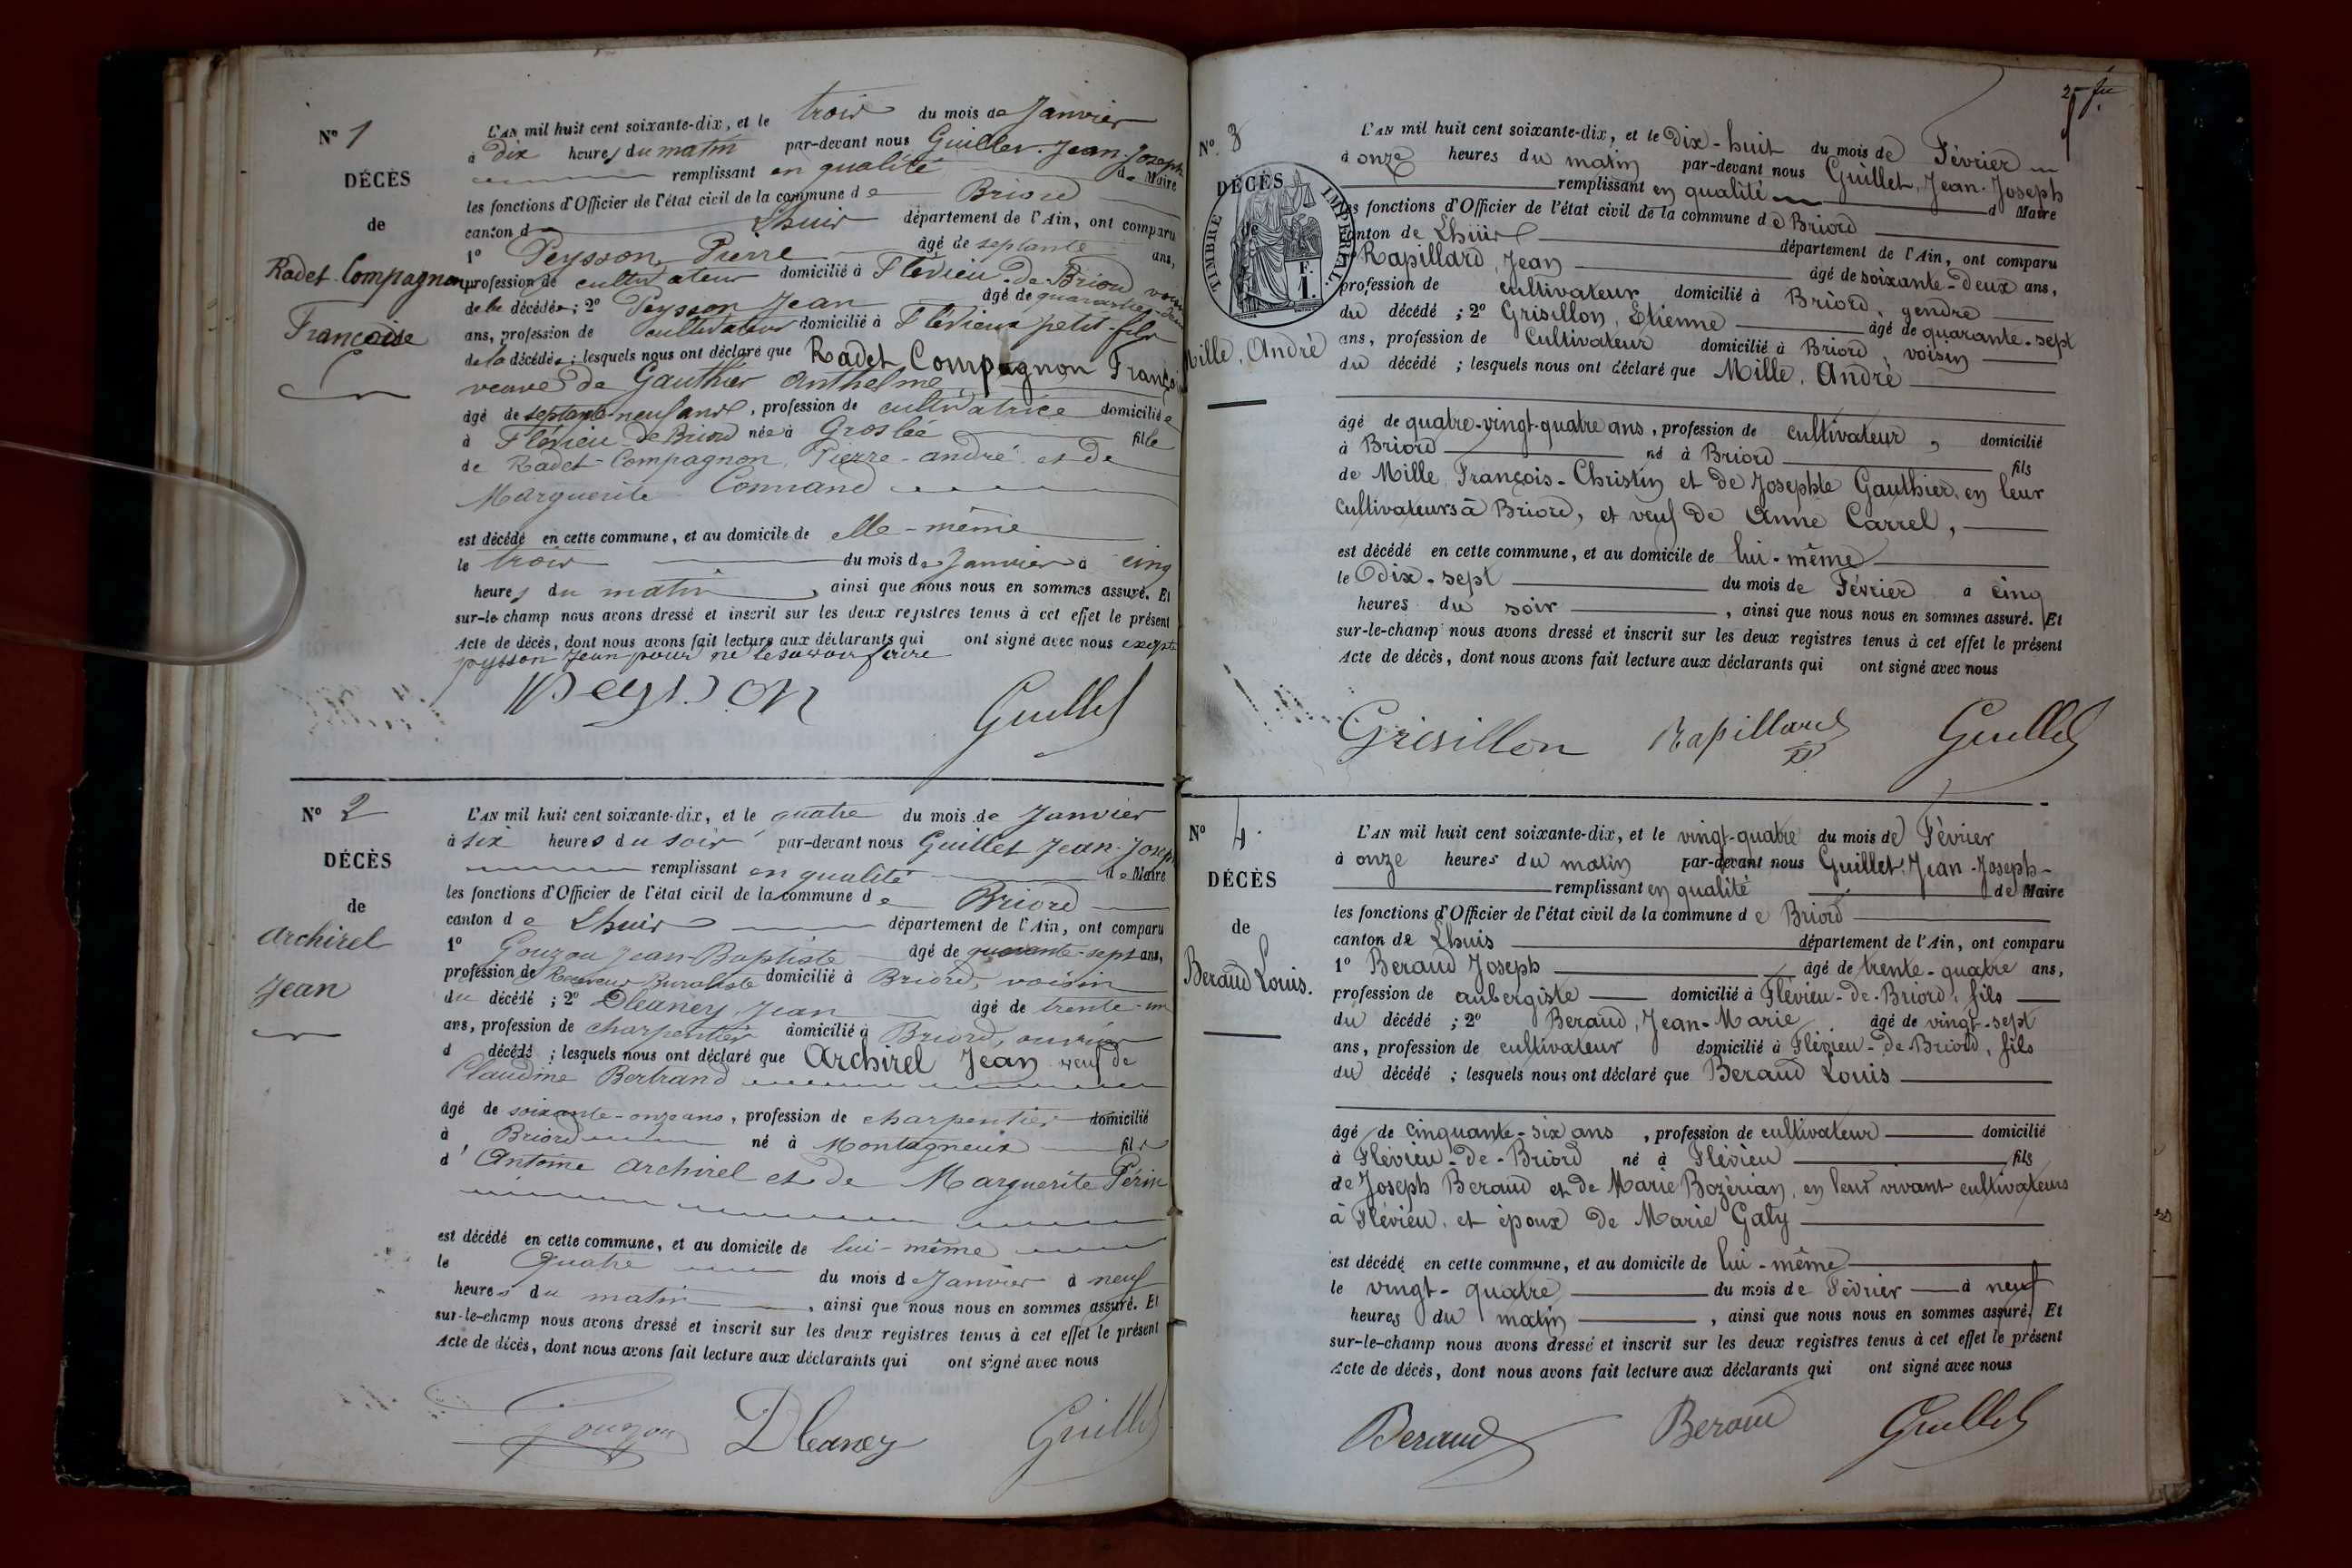 N° 1
DÉCÈS
de
Radet-Compagnon
Françoise
L'AN mil huit cent soixante-dix, et le trois du mois de Janvier
à dix heures du matin par-devant nous Guillet Jean-Joseph
remplissant en qualité de Maire
les fonctions d'Officier de l'état civil de la commune de Briord
canton d Lhuis département de l'Ain, ont comparu
1° Peysson Pierre âgé de septante ans,
profession de cultivateur domicilié à Flévieu-de-Briord voisin
de la décédée ; 2° Peysson Jean âgé de quarante-deux
ans, profession de cultivateur domicilié à Flévieux petit-fils
de la décédée ; lesquels nous ont déclaré que Radet Compagnon Franço
veuve de Gauthier Anthelme
âgé de septante-neuf ans, profession de cultivatrice domiciliée
à Flévieu-de-Briord née à Groslée fille
de Radet-Compagnon, Pierre-andré et de
Marguerite Connand
est décédé en cette commune, et au domicile de elle-même
le trois du mois de Janvier à cinq
heures du matin, ainsi que nous nous en sommes assuré. Et
sur-le-champ nous avons dressé et inscrit sur les deux registres tenus à cet effet le présent
Acte de décès, dont nous avons fait lecture aux déclarants qui ont signé avec nous except
peysson Jean pour ne le savoir faire
peysson Guillet
N° 2
DÉCÈS
de
Archirel
Jean
L'AN mil huit cent soixante-dix, et le quatre du mois de Janvier
à six heures du soir par-devant nous Guillet Jean-Joseph
remplissant en qualité de Maire
les fonctions d'Officier de l'état civil de la commune de Briord
canton de Lhuis département de l'Ain, ont comparu
1° Gouzou Jean-Baptiste âgé de quarante-sept ans,
profession de Receveur Buraliste domicilié à Briord, voisin
du décédé ; 2° Dleaney, Jean âgé de trente-un
ans, profession de charpentier domicilié à Briord, ouvrier
d décédé ; lesquels nous ont déclaré que Archirel Jean veuf de
Claudine Bertrand
âgé de soixante-onze ans, profession de charpentier domicilié
à Briord né à Montagneux fils
d'Antoine Archirel et de Marguerite Périn
est décédé en cette commune, et au domicile de lui-même
le Quatre du mois de Janvier à neuf
heures du matin, ainsi que nous nous en sommes assuré. Et
sur-le-champ nous avons dressé et inscrit sur les deux registres tenus à cet effet le présent
Acte de décès, dont nous avons fait lecture aux déclarants qui ont signé avec nous
Gouzou Dleaney Guillet
N° 3
DÉCÈS
de
TIMBRE IMPÉRIAL
F.
1.
Mille, André
L'AN mil huit cent soixante-dix, et le Dix-huit du mois de Février
à onze heures du matin par-devant nous Guillet, Jean-Joseph
remplissant en qualité d Maire
les fonctions d'Officier de l'état civil de la commune de Briord
canton de Lhuis département de l'Ain, ont comparu
Rapillard, Jean âgé de soixante-deux ans,
profession de cultivateur domicilié à Briord, gendre
du décédé ; 2° Grisillon, Etienne âgé de quarante-sept
ans, profession de Cultivateur domicilié à Briord, voisin
du décédé ; lesquels nous ont déclaré que Mille, André
âgé de quatre-vingt-quatre ans, profession de cultivateur, domicilié
à Briord né à Briord fils
de Mille, François-Christin et de Josephte Gauthier, en leur
cultivateurs à Briord, et veuf de Anne Carrel,
est décédé en cette commune, et au domicile de lui-même
le Dix-sept du mois de Février à cinq
heures du soir, ainsi que nous nous en sommes assuré. Et
sur-le-champ nous avons dressé et inscrit sur les deux registres tenus à cet effet le présent
Acte de décès, dont nous avons fait lecture aux déclarants qui ont signé avec nous
Grisillon Rapillard Guillet
N° 4.
DÉCÈS
de
Beraud Louis.
L'AN mil huit cent soixante-dix, et le vingt-quatre du mois de Février
à onze heures du matin par-devant nous Guillet, Jean-Joseph-
remplissant en qualité de Maire
les fonctions d'Officier de l'état civil de la commune de Briord
canton de Lhuis département de l'Ain, ont comparu
1° Beraud Joseph âgé de trente-quatre ans,
profession de aubergiste domicilié à Flévieu-de-Briord, fils
du décédé ; 2° Beraud, Jean-Marie, âgé de vingt-sept
ans, profession de cultivateur domicilié à Flévieu-de-Briord, fils
du décédé ; lesquels nous ont déclaré que Beraud Louis
âgé de cinquante-six ans, profession de cultivateur domicilié
à Flévieu-de-Briord né à Flévieu fils
de Joseph Beraud et de Marie Bozérian, en leur vivant cultivateurs
à Flévieu, et époux de Marie Gaty
est décédé en cette commune, et au domicile de lui-même
le vingt-quatre du mois de Février à neuf
heures du matin, ainsi que nous nous en sommes assuré. Et
sur-le-champ nous avons dressé et inscrit sur les deux registres tenus à cet effet le présent
Acte de décès, dont nous avons fait lecture aux déclarants qui ont signé avec nous
Beraud Beraud Guillet